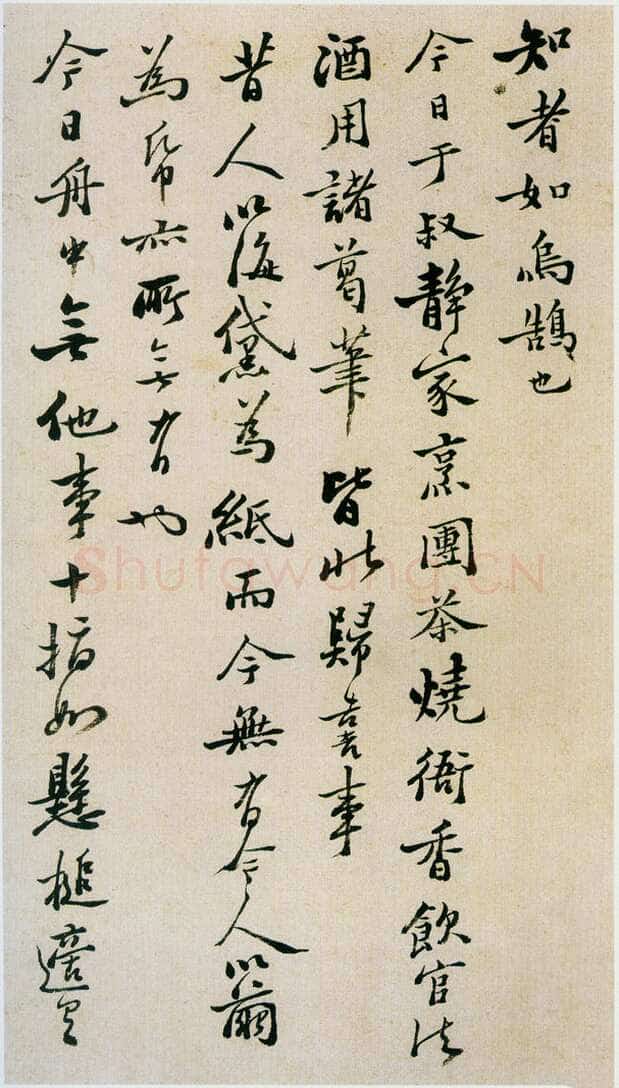 知者如烏鵠也
今日于叔静家烹團茶燒衙香飲官法
酒用諸葛筆皆北歸喜事
昔人以海黛為紙而今無有今人以繭
為帋亦所無有也
今日舟中無他事十指如懸槌適
Shufawang.CN